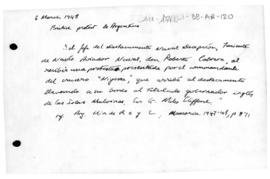 6 March 1948
British protest to Argentina
"el jefe del destacamento Naval Decepción, Teniente
de Navío Aviador Naval, don Roberto Cabrera, al
recibir una protesta presentada por el commandante
del crucero "Nigeria", que arribó al destacamento
llevando a su bordo al titulado gobernador inglés
de las Islas Malvinas, Sir G. Miles Clifford."
cf. Arg. Min de R e y C, Memoria, 1947-48, p 871